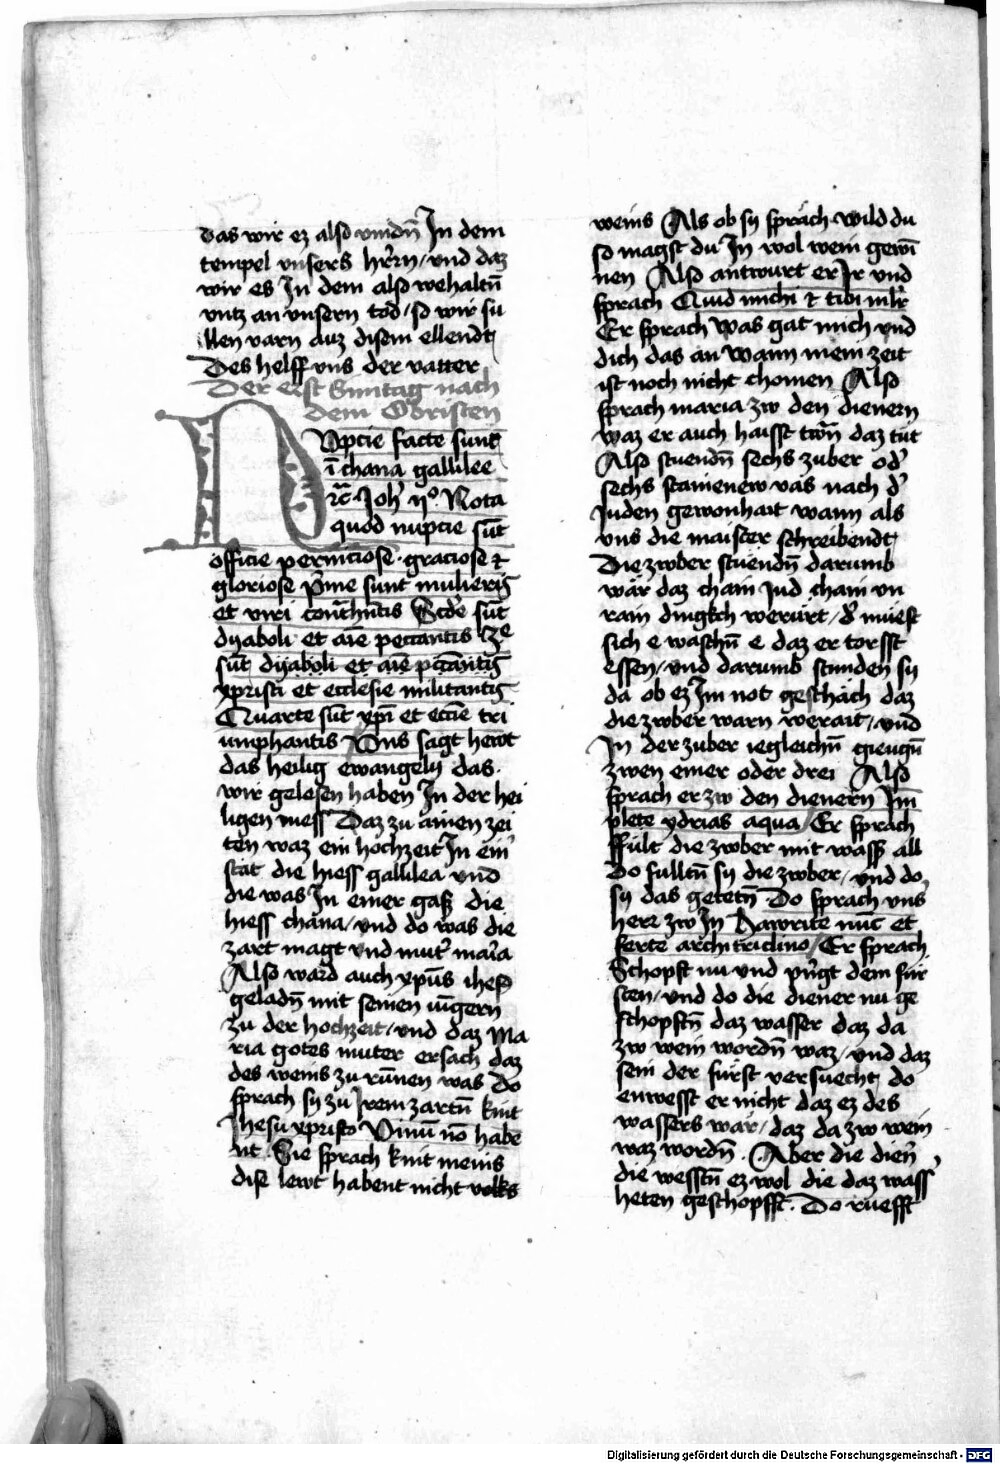 das wir ez also vindn̄ In dem
tempel vnsers hr̄rn / vnd daz
wir es In dem also wehaltn̄
vntz an vnsern tod / so wir sü
llen varn auz disem ellendt
Des helff vns der vatter
Der erst Suntag nach
dem Obristen
Nvpcie facte sunt
ī chana gallilee
rc̄ Joh̄ ijº Nota
quod nupcie sūt
officie perniciose · graciose et
gloriose p̄me sunt mulieris
et viri Scd̄e sūt
dyaboli et aīe peccantis
sūt dyaboli et aīe
xpristi et ecclesie militantis
Quarte sūt xp̄i et eccīe tri
umphantis Vns sagt hewt
das heilig ewangely das
wir gelesen haben In der hei
ligen mess Daz zu ainen zei
ten waz ein hochzeit In ein̄
stat die hiess gallilea vnd
die was In einer gaß die
hiess chana / vnd do was die
zart magt vnd mut̄ mar̄a
Also ward auch xp̄us ihes̄
geladn̄ mit seinen iūgern
zu der hochzeit / vnd daz Ma
ria gotes muter ersach daz
des weins zu rūnen was Do
sprach sy zu Irem zartn̄ kint
Jhesu xpristo Vinū nō habe
nt · Sie sprach kint meins
dise lewt habent nicht volks
weins Als ob sy spräch wild du
so magst du In wol wein gewī
nen Also antwurt er Ir vnd
sprach Quid michi et tibi ml̄r
Er sprach was gat mich vnd
dich das an Wann mein zeit
ist noch nicht chomen Also
sprach maria zw den dienern
waz er auch haisst daz tüt
Also stuendn̄ sechs zuber od̄
sechs stainenew vas nach d̄
Juden gewonhait wann als
vns die maister schreibendt
Die zwber stüendn̄ darumb
wär daz chain Jud chain vn
rain dingkch werürt / d̄ müest
sich e waschn̄ e daz er torsst
essen / vnd darumb stunden sy
da ob ez Im not geschäch daz
die zwber warn werait / vnd
In der zuber iegleichn̄ giengn̄
zwen emer oder drei Also
sprach er zw den dienern Im
plete ydrias aqua / Er sprach
ffült die zwber mit wass̄ all
Do fulltn̄ sy die zwber / vnd do
sy das getetn̄ Do sprach vns̄
here zw In Hawrite nūc et
ferte architriclino / Er sprach
Schopft nu vnd p̄ngt dem für
sten / vnd do die diener nu ge
schopftn̄ daz wasser daz da
zw wein wordn̄ waz / vnd daz
sein der fürst versuecht do
enwesst er nicht daz ez des
wassers wär / daz da zw wein
waz wordn̄ · Aber die dien̄
die wesstn̄ ez wol die daz wass̄
heten geschopfft · Do ruefft
Digitalisierung gefördert durch die Deutsche Forschungsgemeinschaft - DFG